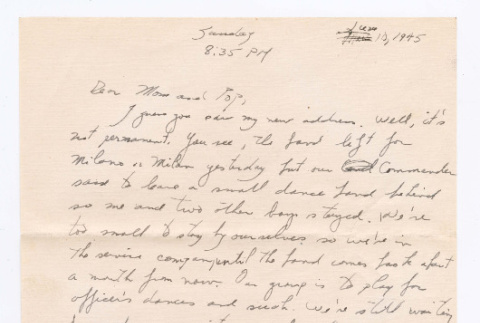 Sunday
8:35 PM
June 10, 1945
Dear Mom and Pop,
I guess you saw my new address. Well, it's
not permanent. You see, the band left for
Milano or Milan yesterday but our Commander
said to leave a small dance band behind
so me and two other boys stayed. We're
too small to stay by ourselves so we're in
the service company until the band comes back about
a month from now. Our group is to play for
officer's dances and such. We're still waiting